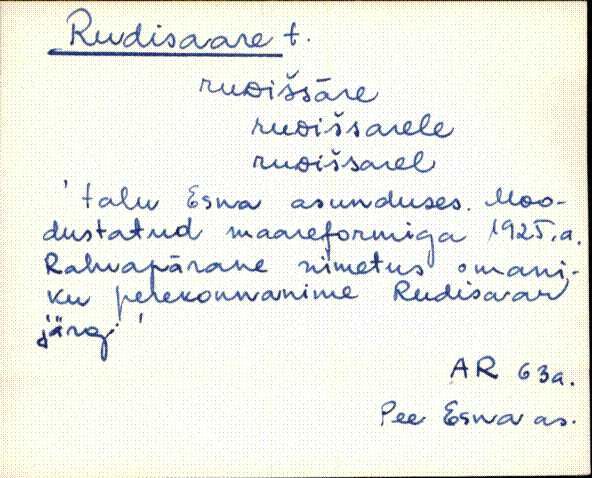 Rudisaare t.
ruᴅiššāre
ruᴅiššarele
ruᴅiššarel
'talu Esna asunduses. Moo-
dustatud maareformiga 1925.a.
Rahvapärane nimetus omani-
ku perekonnanime Rudisaar
järg.'
AR 63a.
Pee Esna as.